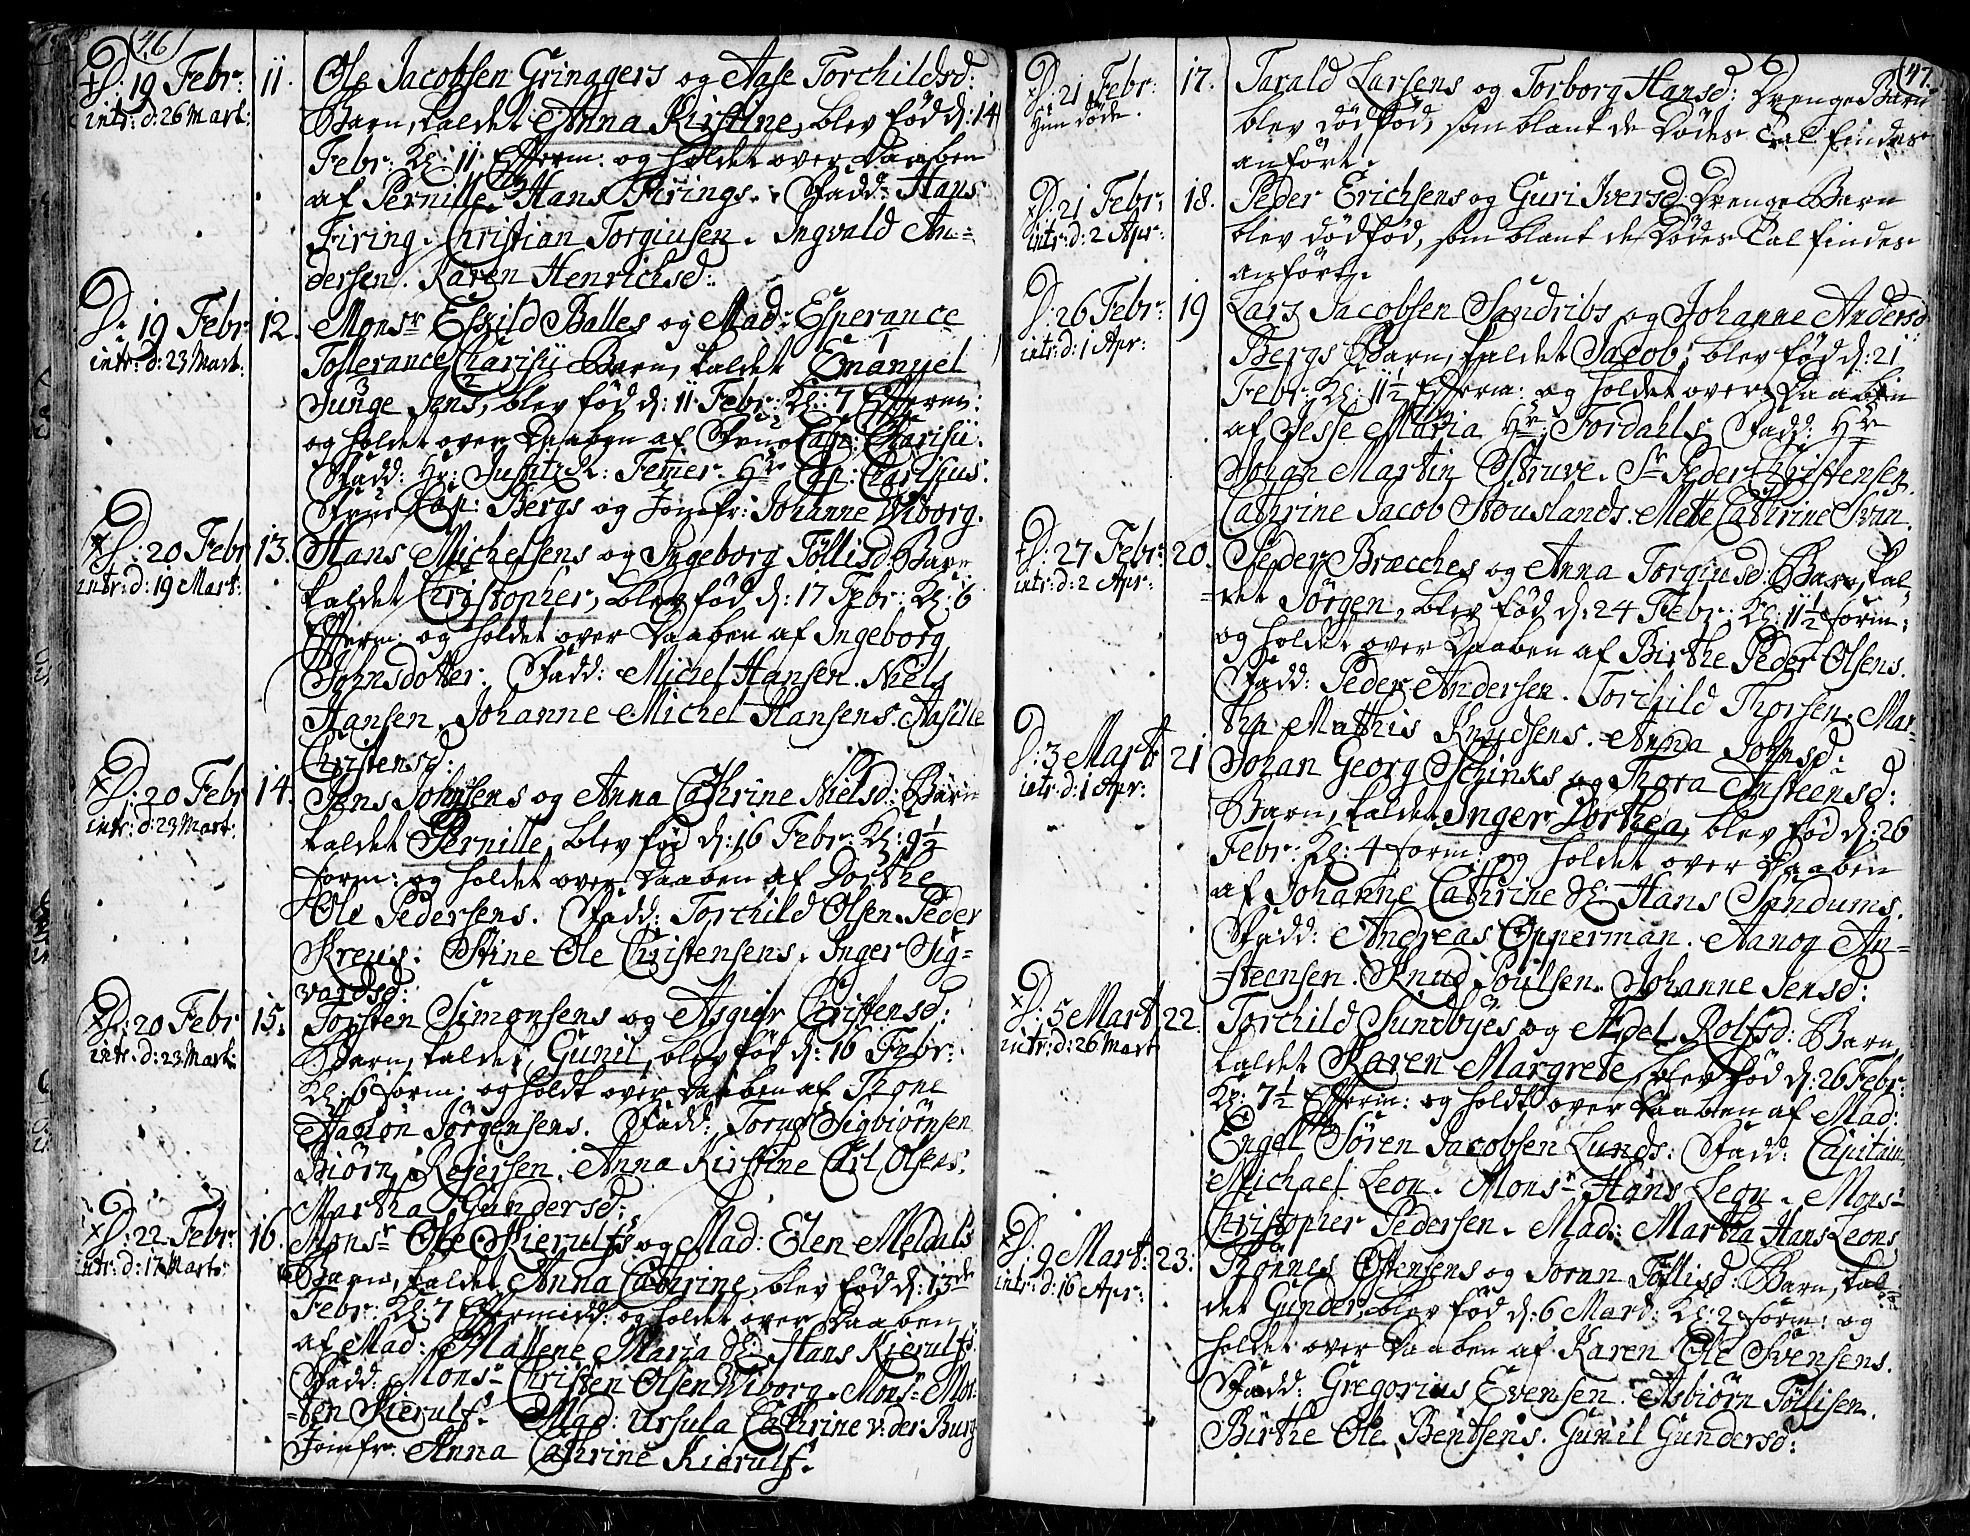 46
D: 19 Febr: 11. Ole Jacobsen Grinagers og Aase Torchildsd:
intr: d: 26 Mart: Barn, kaldet Anna Kirstine, blev fød d: 14
Febr: Kl: 11 Efterm: og holdet over Daaben
af Pernille Hans Firings. Fadd: Hans
Firing. Christian Torgiusen. Ingvald An=
dersen. Karen Henrichsd:
D: 19 Febr: 12. Monsr Eskild Balles og Mad: Esperance
intr: d: 23 Mart: Tollerance Charisii Barn, kaldet Emanuel
Junge Jens, blev fød d: 11 Febr: Kl: 7 Efterm:
og holdet over Daaben af Frue Cap: Charisii.
Fadd: Hr: Justitz R: Femer. Hr Cap: Charisius.
Frue Cap: Bergs og Jomfr: Johanne Wiborg.
D: 20 Febr 13. Hans Michelsens og Ingeborg Töllisd: Barn
intr: d: 19 Mart: kaldet Christopher, blev fød d: 17 Febr: Kl: 6
Efterm: og holdet over Daaben af Ingeborg
Johnsdotter: Fadd: Michel Hansen. Niels
Hansen. Johanne Michel Hansens. Aasille
Christensd:
D: 20 Febr 14. Jens Johnsens og Anna Cathrine Nielsd: Barn
intr: d: 23 Mart: kaldet Pernille, blev fød d: 16 Febr: Kl: 9½
form: og holdet over Daaben af Dorthe
Ole Pedersens. Fadd: Torchild Olsen. Peder
Kreus: Stine Ole Christensens. Inger Sig=
vardsd:
D: 20 Febr 15. Torsten Simonsens og Asgier Christensd:
intr: d: 23 Mart: Barn, kaldet Gunil, blev fød d: 16 Febr:
Kl: 6 form: og holdt over Daaben af Thone
Haagen Jörgensens. Fadd: Torup Sigbiörnsen
Biörn Rejersen. Anna Kirstine Carl Olsens.
Martha Gundersd:
D: 22 Febr: 16. Monsr Ole Kierulfs og Mad: Elen Meldals
intr: d: 17 Mart: Barn, kaldet Anna Cathrine, blev fød d: 13de
Febr: Kl: 7 Eftermidd: og holdet over Daaben
af Mad: Mallene Maria Sl: Hans Kierulfs.
Fadd: Monsr Christen Olsen Wiborg. Monsr Mor=
ten Kierulf. Mad: Ursula Cathrine v: der Burg
Jomfr: Anna Cathrine Kierulf.
47.
D: 21 Febr: 17. Tarald Larsens og Torborg Hansd: Drenge Barn
Hun døde. blev dødfød, som blant de Dödes Tal findes
anført.
D: 21 Febr: 18. Peder Erichsens og Guri Iversd: Drenge Barn
intr: d: 2 Apr: blev dødfød, som blant de Dödes Tal findes
anført.
D: 26 Febr: 19 Lars Jacobsen Sandribs og Johanne Andersd
intr: d: 1 Apr: Bergs Barn, kaldet Jacob, blev fød d: 21
Febr: Kl: 11½ Efterm: og holdet over Daaben
af Jesse Maria Hr: Tordahls. Fadd: Hr
Johan Martin Struve. Sr Peder Christensen.
Cathrine Jacob Stouslands. Mette Cathrine Svan.
D: 27 Febr: 20. Peder Bræcches og Anna Torgiusd: Barn, kal=
intr: d: 2 Apr: det Jörgen, blev fød d: 24 Febr: Kl: 11½ form:
og holdet over Daaben af Birthe Peder Olsens.
Fadd: Peder Andersen. Torchild Thorsen. Mar=
tha Mathis Knudsens. Anna Johnsd:
D: 3 Mart: 21 Johan Georg Schinks og Thora Ansteensd:
intr: d: 1 Apr: Barn, kaldet Inger Dorthea, blev fød d: 26
Febr: Kl: 4 form: og holdet over Daaben
af Johanne Cathrine Sl: Hans Sandums.
Fadd: Andreas Opperman. Aanon An=
steensen. Knud Poulsen. Johanne Jensd:
D: 5 Mart 22. Torchild Sundbÿes og Adel Rolfsd: Barn,
intr: d: 26 Mart kaldet Karen Margrete, blev fød d: 26 Febr:
Kl: 7½ Efterm: og holdt over Daaben af Mad:
Engel Sören Jacobsen Lunds: Fadd: Capitain
Michael Leon. Monsr Hans Leon. Monsr
Christopher Pedersen. Mad: Martha Hans Leons.
D: 9 Mart: 23. Thönnes Ostensens og Joran Töllisd: Barn, kal=
intr: d: 16 Apr: det Gunder, blev fød d: 6 Mart: Kl: 2 form: og
holdet over Daaben af Karen Ole Svensens.
Fadd: Gregorius Evensen. Asbiörn Töllisen.
Birthe Ole Bentsens. Gunil Gundersd: